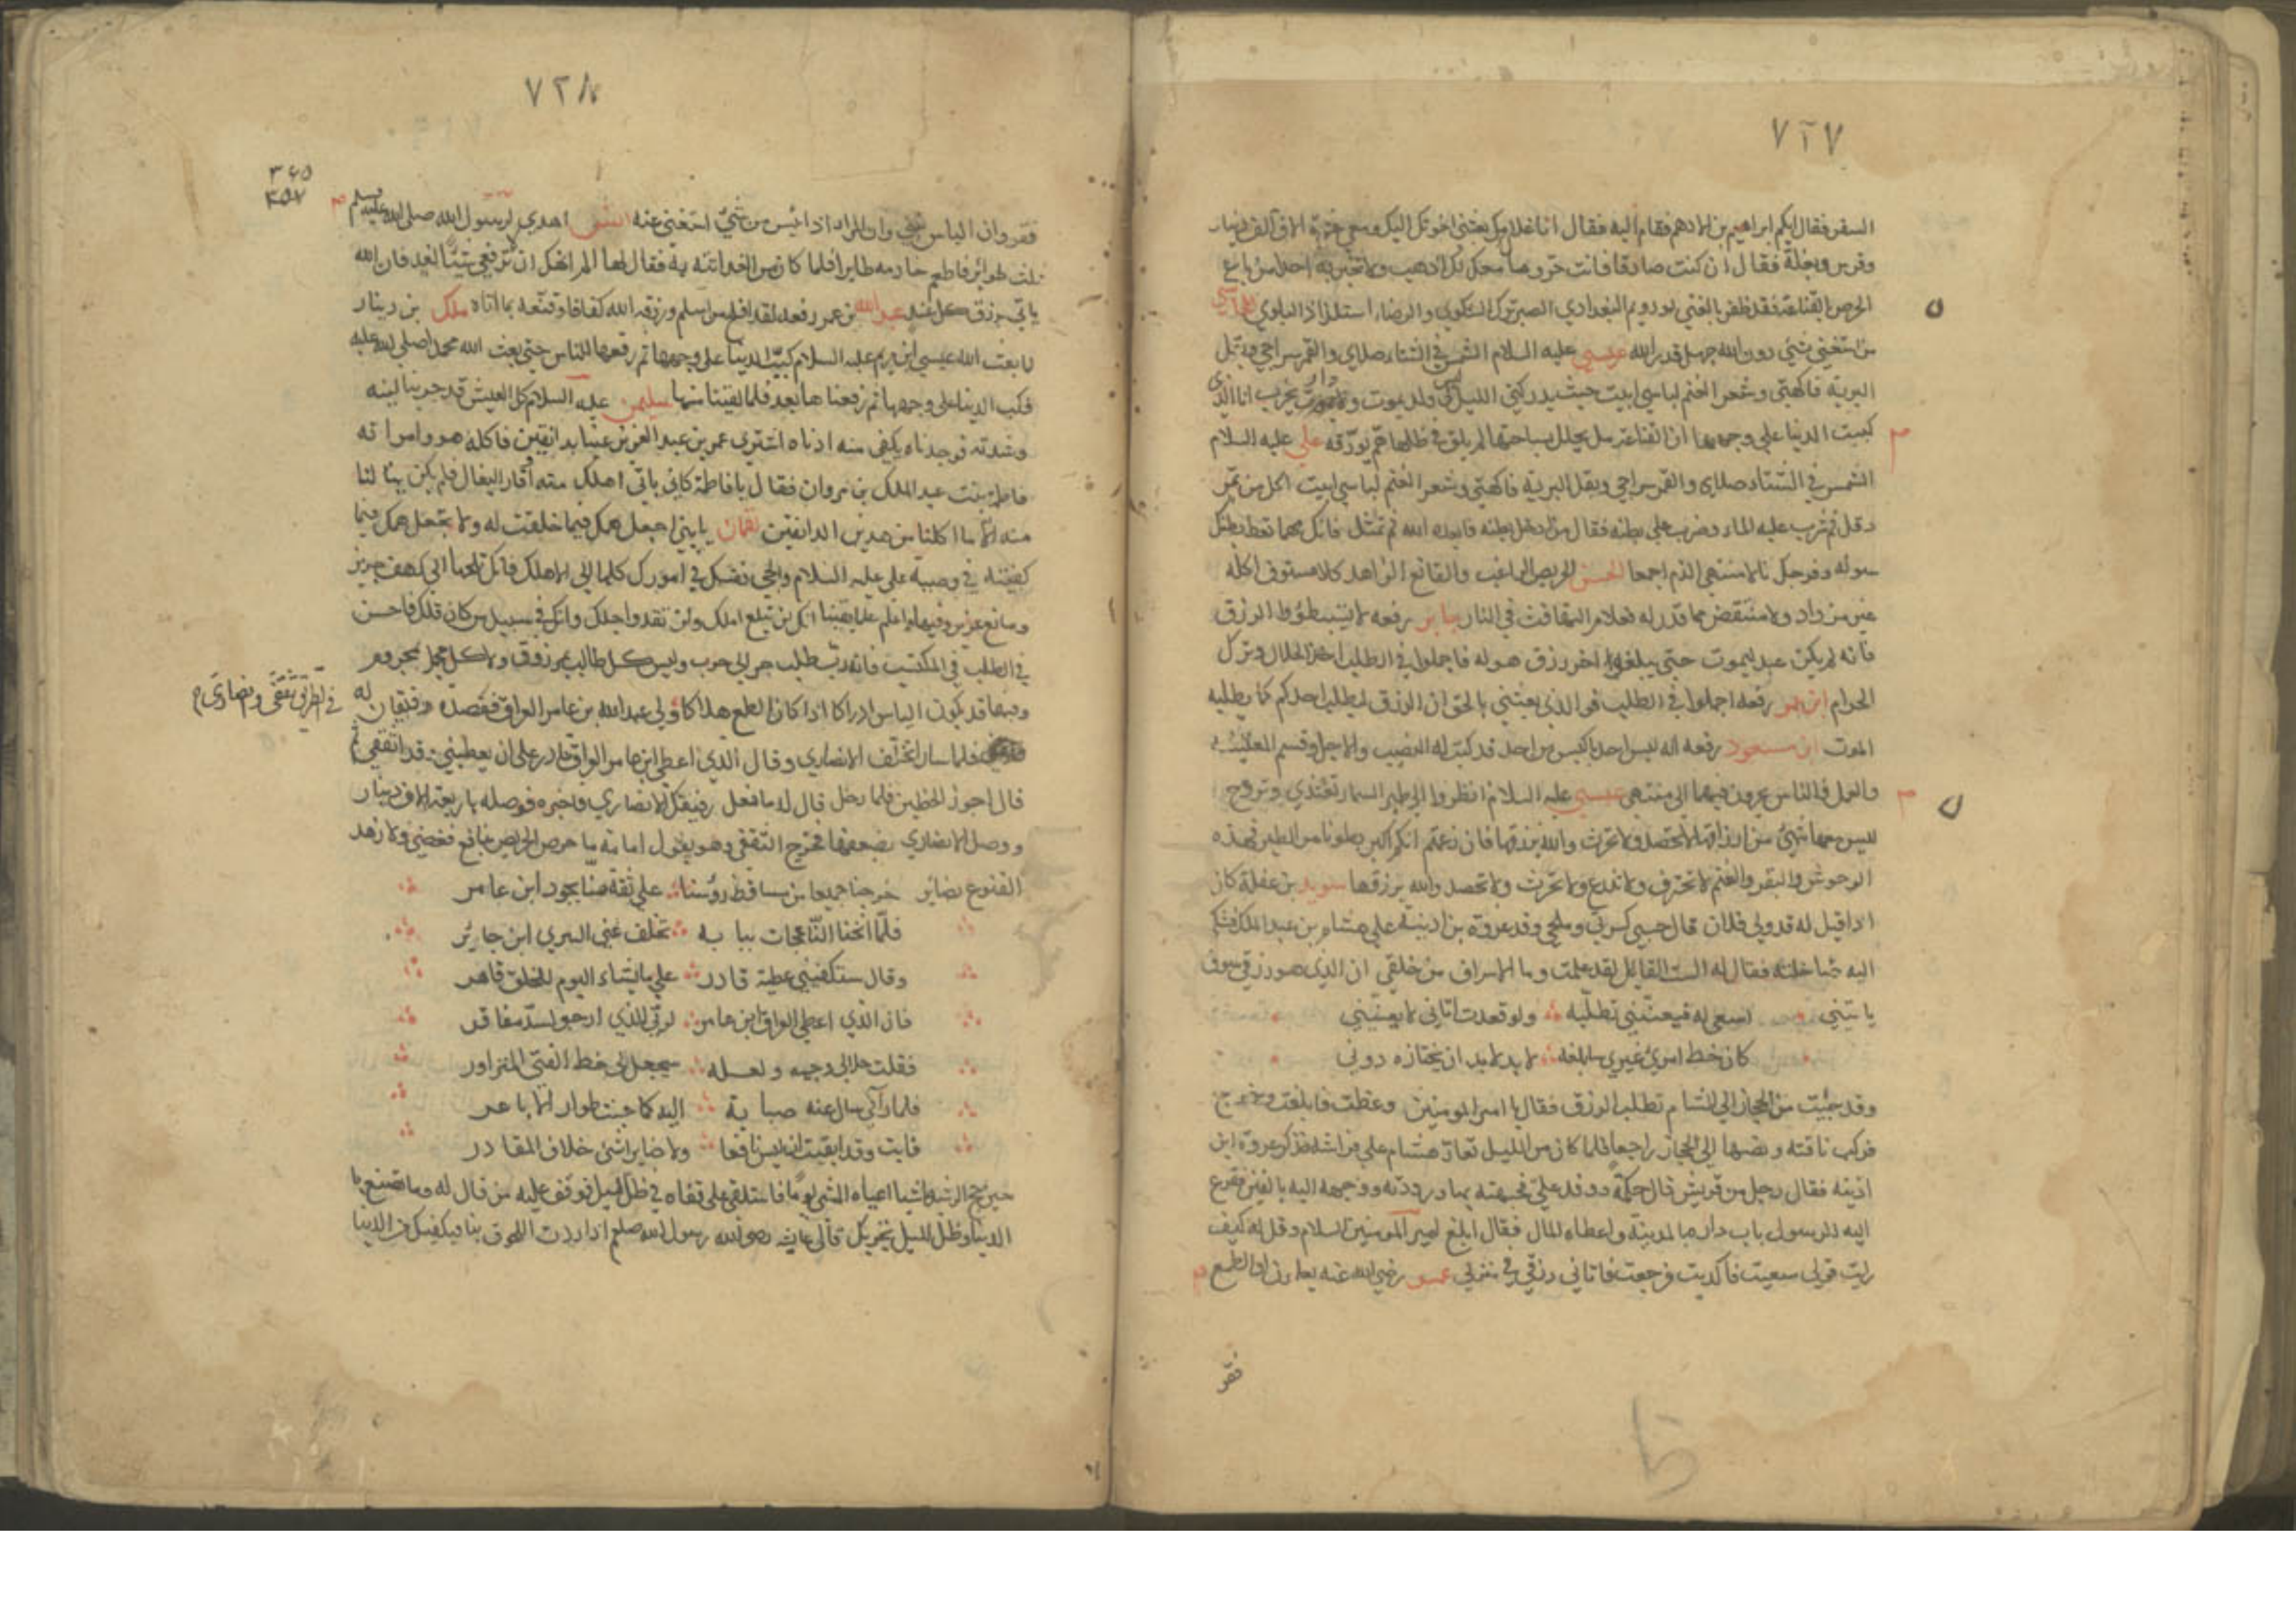 ٧٢٧
السفر فقال ايكم ابراهيم بن الادهم فقام اليه فقال انا غلامك بعثني اخوتك اليك ومعي عشرة الاف دينار
وفرس وبغلة فقال ان كنت صادقا فانت حر وما معك لك اذهب ولا تخبر به احدا من باع
الحرص بالقناعة فقد ظفر بالغني رويم البغدادي الصبر ترك الشكوي والرضاء استلذاذ البلوي
من استغني بشيء دون الله جهل قدر الله عيسي عليه السلام الشمس في الشتاء صلاي والقمر سراجي وبقل
البرية فاكهتي وشعر الغنم لباسي ابيت حيث يدركني الليل ليس لي ولد يموت ولا دار يخرب انا الذي
كببت الدنيا علي وجهها ان القناعة من يحلل بساحتها لم يلق في ظلها هم يورقه علي عليه السلام
الشمس في الشتاء صلاي والقمر سراجي وبقل البرية فاكهتي وشعر الغنم لباسي ابيت اكل من تمر
دقل ثم شرب عليه الماء وضرب علي بطنه فقال من ادخل بطنه فابعده الله ثم تمثل فانك مهما تعط بطنك
سوله وفرجك نالا منتهي الذم اجمعا الحسن الحريص الراغب والقانع الزاهد كلا مستوف اكله
غير مزداد ولا منتقص مما قدر له فعلام التهافت في النار جابر رفعه لا تستبطؤا الرزق
فانه لم يكن عبد ليموت حتي يبلغه اخر رزق هو له فاجملوا في الطلب اخذ الحلال وترك
الحرام ابن عمر رفعه اجملوا في الطلب فو الذي بعثني بالحق ان الرزق ليطلب احدكم كما يطلبه
الموت ابن مسعود رفعه انه ليس احد باكيس من احد قد كتب له النصيب والاجل وقسم المعيشة
والعمل فالناس يجرون فيهما الي منتهي عيسي عليه السلام انظروا الي طير السماء تغتدي وتروح
ليس معها شيء من ارزاقها لا تحصد ولا تحرث والله يرزقها فان زعمتم انكم اكبر بطونا من الطير فهذه
الوحوش والبقر والغنم لا تحترف ولا تزرع ولا تحرث ولا تحصد والله يرزقها سويد بن غفلة كان
اذا قيل له قد ولي فلان قال حسبي كسرتي وملحي وفد عروة بن اذينة علي هشام بن عبد الملك فشكا
اليه خلته فقال له الست القايل لقد علمت وما الاسراف من خلقي ان الذي هو رزقي سوف
ياتيني اسعي له فيعنيني تطلبه ولو قعدت اتاني لا يعنيني
كان حظ امرئ غيري سابلغه لا بد لا بد ان يحتازه دوني
وقد جيت من الحجاز الي الشام تطلب الرزق فقال يا امير المومنين وعظت فابلغت وخرج
فركب ناقته ونصها الي الحجاز راجعا فلما كان من الليل تعار هشام علي فراشه فذكر عروة ابن
اذينه فقال رجل من قريش قال حكمة ووفد علي فجبهته ورددته ووجه اليه بالفين فقرع
اليه الرسول باب داره بالمدينة واعطاه المال فقال ابلغ امير المومنين السلام وقل له كيف
رايت قولي سعيت فاكديت فرجعت فاتاني رزقي في منزلي عمر رضي الله عنه تعلمون ان الطمع
فقر
٧٢٨
فقر وان الياس غني وان المرا اذا ائيس من شيئ استغني عنه انس اهدي لرسول الله صلي الله عليه وسلم
ثلث طوائر فاطعم خادمه طايرا فلما كان من الغد اتته به فقال لها الم انهك ان ترفعي شيئا لغد فان الله
ياتي برزق كل غد عبد الله بن عمر رفعه لقد افلح من اسلم ورزقه الله كفافا وقنعه بما اتاه ملك بن دينار
لما بعث الله عيسي ابن مريم عليه السلام كب الدنيا علي وجهها ثم رفعها الناس حتي بعث الله محمدا صلي الله عليه
فكب الدنيا علي وجهها ثم رفعناها بعد فلما لقينا منها سليمن عليه السلام كل العيش قد جربنا لينه
وشدته فوجدناه يكفي منه ادناه اشتري عمر بن عبد العزيز عنبا بدانقين فاكله هو وامراته
فاطمة بنت عبد الملك بن مروان فقال يا فاطمة كان ياتي اهلك منه اوقار البغال فلم يكن يهنا لنا
منه الا ما اكلنا من هذين الدانقين لقمان يا بني اجعل همك فيما خلقت له ولا تجعل همك فيما
كفيته في وصية علي عليه السلام والجئ نفسك في امورك كلها الي الاهك فانك تلجئها الي كهف حريز
ومانع عزيز وفيها اعلم علما يقينا انك لن تبلغ املك ولن تعدو اجلك وانك في سبيل من كان قبلك فاحسن
في الطلب في المكتسب فانه رب طلب جر الي حرب وليس كل طالب بمرزوق ولا كل مجمل بمحروم
وفيها قد يكون الياس ادراكا اذا كان الطمع هلاكا ولي عبد الله بن عامر العراق فقصده رفيقان له
فلما سارا تخلف الانصاري وقال الذي اعطي ابن عامر العراق قادر علي ان يعطيني قد الثقفي ثم
قال احوز الحظين فلما دخل قال له ما فعل رفيقك الانصاري فاخبره فوصله باربعة الاف دينار
ووصل الانصاري بضعفها فخرج الثقفي وهو يقول امامة ما حرص الحريص بنافع فغضي ولا زهد
القنوع بضاير خرجنا جميعا من مساقط رؤسنا علي ثقة منا بجود ابن عامر
فلما انخنا الناعجات ببابه تخلف عني اليثربي ابن جابر
وقال ستكفيني عطية قادر علي ما يشاء اليوم للخلق قاهر
فان الذي اعطي العراق ابن عامر لربي الذي ارجو لسد مفاقر
فقلت خلالي وجهه ولعله سيجعل لي حظ الفتي المتزاور
فلما رآني سال عنه صبابة اليه كما حنت ظوار الاباعر
فابت وقد ايقنت ان ليس نافعا ولا ضايرا شئ خلاف المقادر
حين حج الرشيد ماشيا اعياه المشي يوما فاستلقي علي قفاه في ظل الميل فوقف عليه من قال له وما تصنع با
الدنيا وظل الميل يجزيك قالت عايشة رضي الله رسول الله صلعم اذا اردت اللحوق بنا فيكفيك من الدنيا
في الطريق ثقفي وانصاري